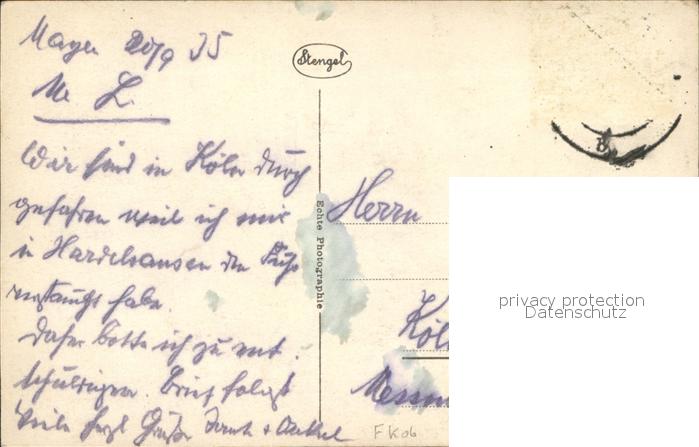 Mayen 20/9 35
M. L.
Wir sind in Köln durch
gefahren weil ich mir
in Hardehausen den Fuß
verstaucht habe.
Daher bitte ich zu ent-
schuldigen. Brief folgt
Viele herzl Grüße Tante + Onkel
Stengel
Echte Photographie
Herrn
Köl
FK06
privacy protection
Datenschutz